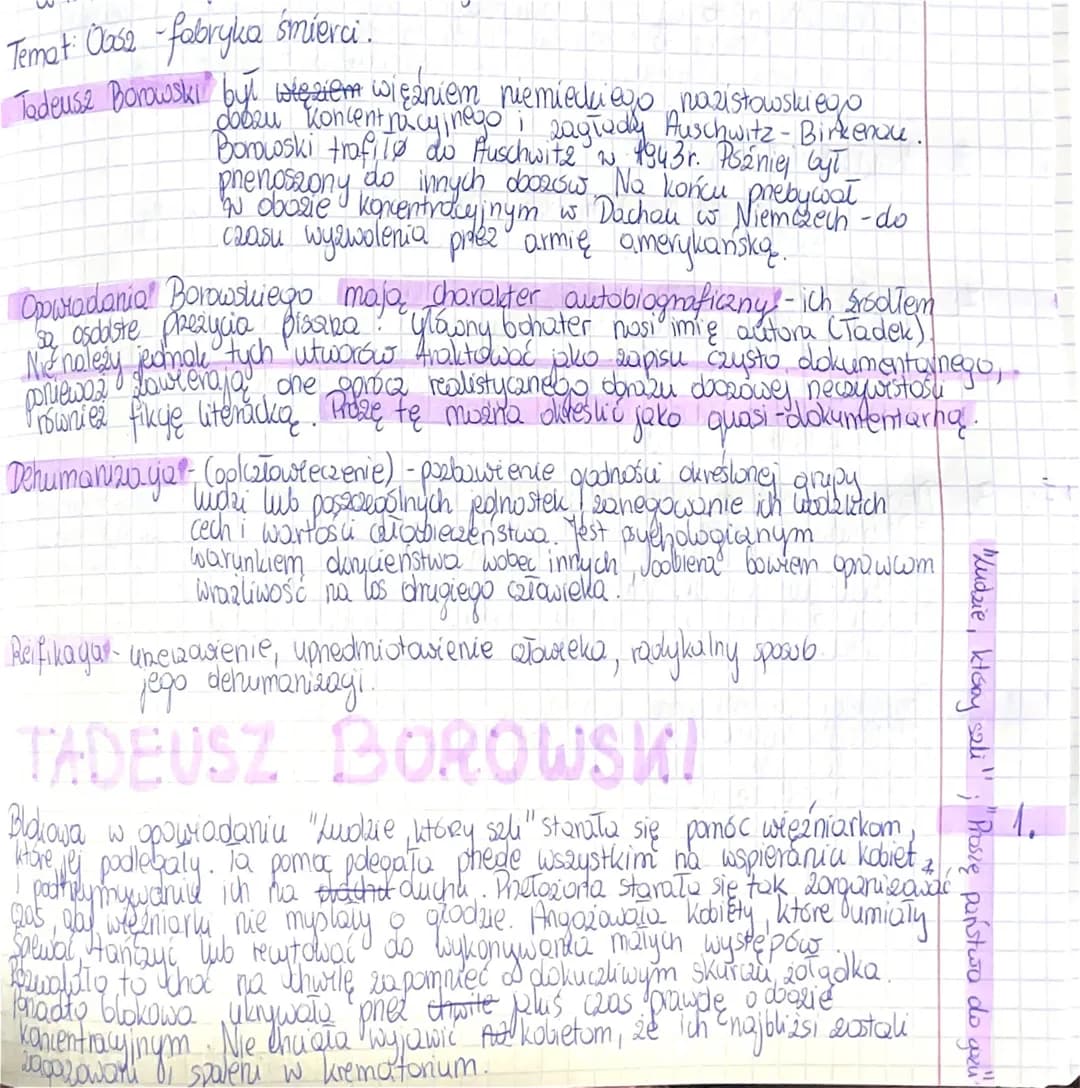 Temat: Obóz - fabryka śmierci.
Tadeusz Borowski był więziem więźniem niemieckiego nazistowskiego
obozu koncentracyjnego i zagłady Auschwitz-Birkenau.
Borowski trafił do Auschwitz w 1943r. Później był
przenoszony do innych obozów. Na końcu przebywał
w obozie koncentracyjnym w Dachau w Niemczech - do
czasu wyzwolenia przez armię amerykańską.
Opowiadania Borowskiego mają charakter autobiograficzny - ich źródłem
są osobiste przeżycia pisarza. Główny bohater nosi imię autora (Tadek).
Nie należy jednak tych utworów traktować jako zapisu czysto dokumentalnego,
ponieważ zawierają one oprócz realistycznego obrazu obozowej rzeczywistości
również fikcję literacką. Prozę tę można określić jako quasi-dokumentarną.
Dehumanizacja - (odczłowieczenie) - pozbawienie godności określonej grupy
ludzi lub poszczególnych jednostek, zanegowanie ich ludzkich
cech i wartości człowieczeństwa. Jest psychologicznym
warunkiem okrucieństwa wobec innych, odbiera bowiem oprawcom
wrażliwość na los drugiego człowieka.
Reifikacja - urzeczowienie, uprzedmiotowienie człowieka, radykalny sposób
jego dehumanizacji.
TADEUSZ BOROWSKI
Blokowa w opowiadaniu "Ludzie, którzy szli" starała się pomóc więźniarkom,
które jej podlegały. Ta pomoc polegała przede wszystkim na wspieraniu kobiet
i podtrzymywaniu ich na duchu. Przełożona starała się tak zorganizować
czas, aby więźniarki nie myślały o głodzie. Angażowała kobiety, które umiały
śpiewać, tańczyć lub recytować do wykonywania małych występów.
Pozwalało to choć na chwilę zapomnieć o dokuczliwym skurczu żołądka.
Ponadto blokowa ukrywała przez chwile jakiś czas prawdę o obozie
koncentracyjnym. Nie chciała wyjawić kobietom, że ich najbliżsi zostali
zagazowani i spaleni w krematorium.
"Ludzie, którzy szli" i "Proszę państwa do gazu"
1.